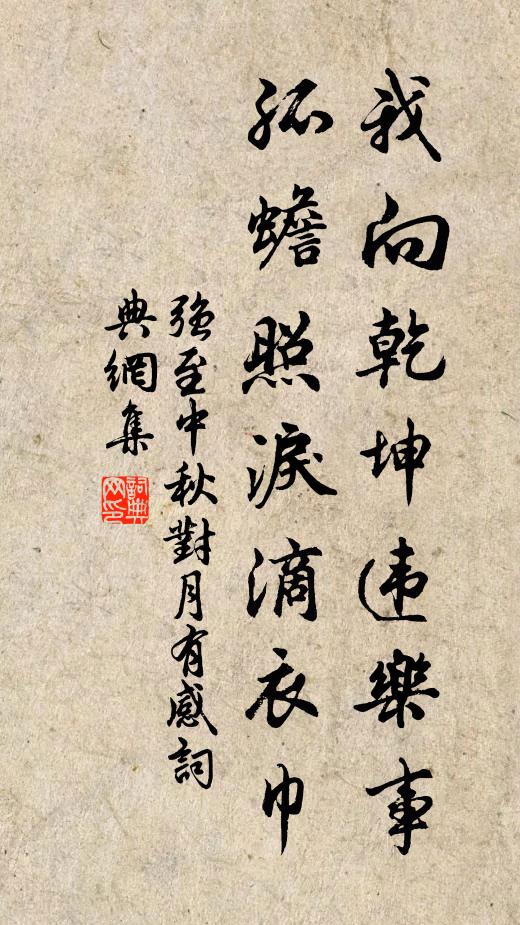 我向乾坤违樂事
孤蟾照淚滴衣巾
強至中秋對月有感詞
典網集
詞典网印